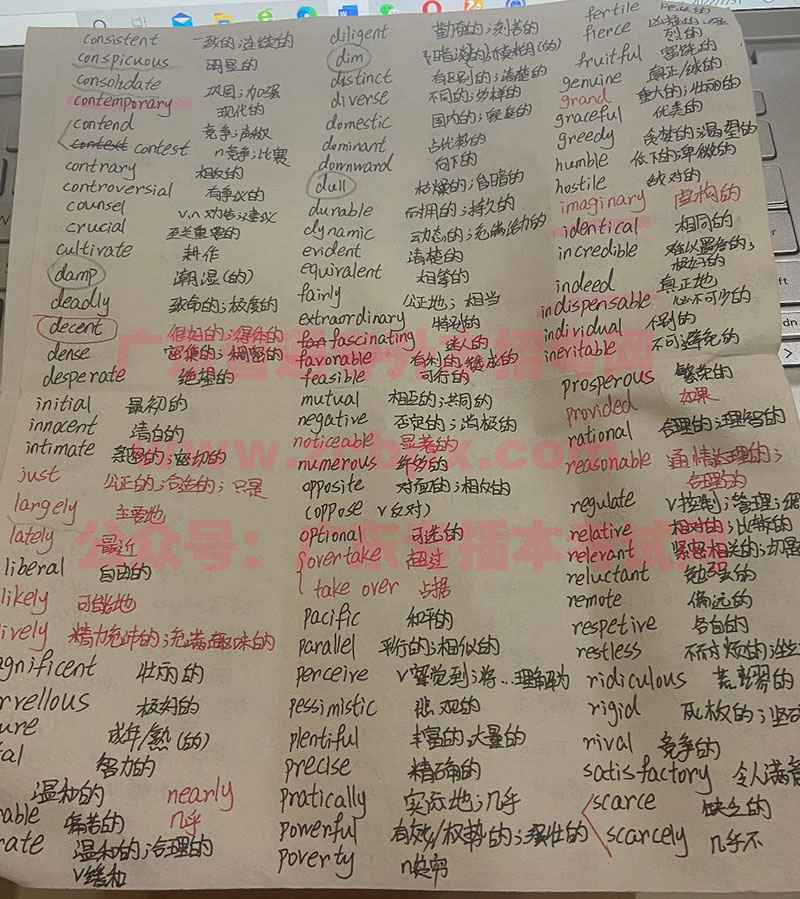 consistent 一致的;连续的
conspicuous 明显的
consolidate 巩固;加强
contemporary 现代的
contend 竞争;声称
contest contest n竞争;比赛
contrary 相反的
controversial 有争议的
counsel v.n 劝告;建议
crucial 至关重要的
cultivate 耕作
damp 潮湿(的)
deadly 致命的;极度的
decent 很好的;得体的
dense 密集的;稠密的
desperate 绝望的
initial 最初的
innocent 清白的
intimate 亲密的;密切的
just 公正的;合适的;只是
largely 主要地
lately 最近
liberal 自由的
likely 可能地
lively 精力充沛的;充满趣味的
agnificent 壮丽的
rvellous 极好的
ure 成年/熟(的)
al 智力的
温和的
nearly 几乎
able 痛苦的
rate 温和的;合理的
v缓和
diligent 勤奋的;刻苦的
dim
distinct 有区别的;清楚的
diverse 不同的;多样的
domestic 国内的;家庭的
dominant 占优势的
downward 向下的
dull 枯燥的;阴暗的
durable 耐用的;持久的
dynamic 动态的;充满活力的
evident 清楚的
equivalent 相等的
fairly 公正地;相当
extraordinary 特别的
fascinating 迷人的
favorable 有利的;赞成的
feasible 可行的
mutual 相互的;共同的
negative 否定的;消极的
noticeable 显著的
numerous 许多的
opposite 对面的;相反的
(oppose v反对)
optional 可选的
overtake 超过
take over 占据
pacific 和平的
parallel 平行的;相似的
perceive v察觉到;将...理解为
pessimistic 悲观的
plentiful 丰富的;大量的
precise 精确的
pratically 实际地;几乎
powerful 有效/权势的;强壮的
poverty n贫穷
fertile
fierce 烈的
fruitful 富饶的
genuine 真正/诚的
grand 重大的;壮丽的
graceful 优美的
greedy 贪婪的;渴望的
humble 低下的;卑微的
hostile 敌对的
imaginary 虚构的
identical 相同的
incredible 难以置信的;极好的
indeed 真正地
indispensable 必不可少的
individual 个别的
ineritable 不可避免的
prosperous 繁荣的
provided 如果
rational 合理的;理智的
reasonable 通情达理的;
合理的
regulate v控制;管理;
relative 相对的;比较的
relerant 紧密相关的;
reluctant 勉强的
remote 偏远的
respetive 各自的
restless 不耐烦的;
ridiculous 荒谬的
rigid 死板的;
rival 竞争的
satisfactory 令人满意
scarce 缺乏的
scarcely 几乎不